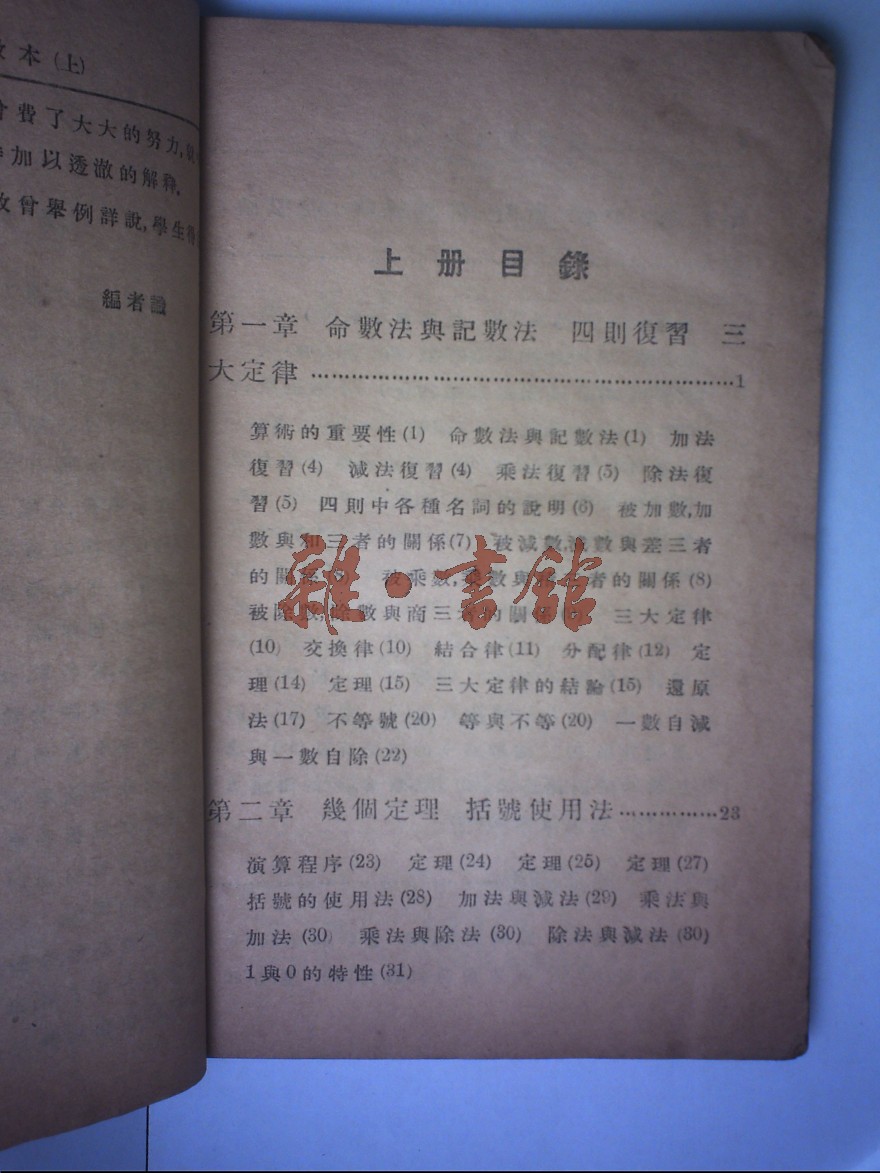 本(上)
費了大大的努力,
加以透澈的解釋.
曾舉例詳說,學生
編者識
上册目錄
第一章 命數法與記數法 四則復習 三
大定律……………………………………………………1
算術的重要性(1) 命數法與記數法(1) 加法
復習(4) 減法復習(4) 乘法復習(5) 除法復
習(5) 四則中各種名詞的說明(6) 被加數,加
數與和三者的關係(7) 被減數,減數與差三者
的關係 被乘數,乘數與 者的關係(8)
被除數,除數與商三者的關係 三大定律
(10) 交換律(10) 結合律(11) 分配律(12) 定
理(14) 定理(15) 三大定律的結論(15) 還原
法(17) 不等號(20) 等與不等(20) 一數自減
與一數自除(22)
第二章 幾個定理 括號使用法……………23
演算程序(23) 定理(24) 定理(25) 定理(27)
括號的使用法(28) 加法與減法(29) 乘法與
加法(30) 乘法與除法(30) 除法與減法(30)
1與0的特性(31)
雜·書館